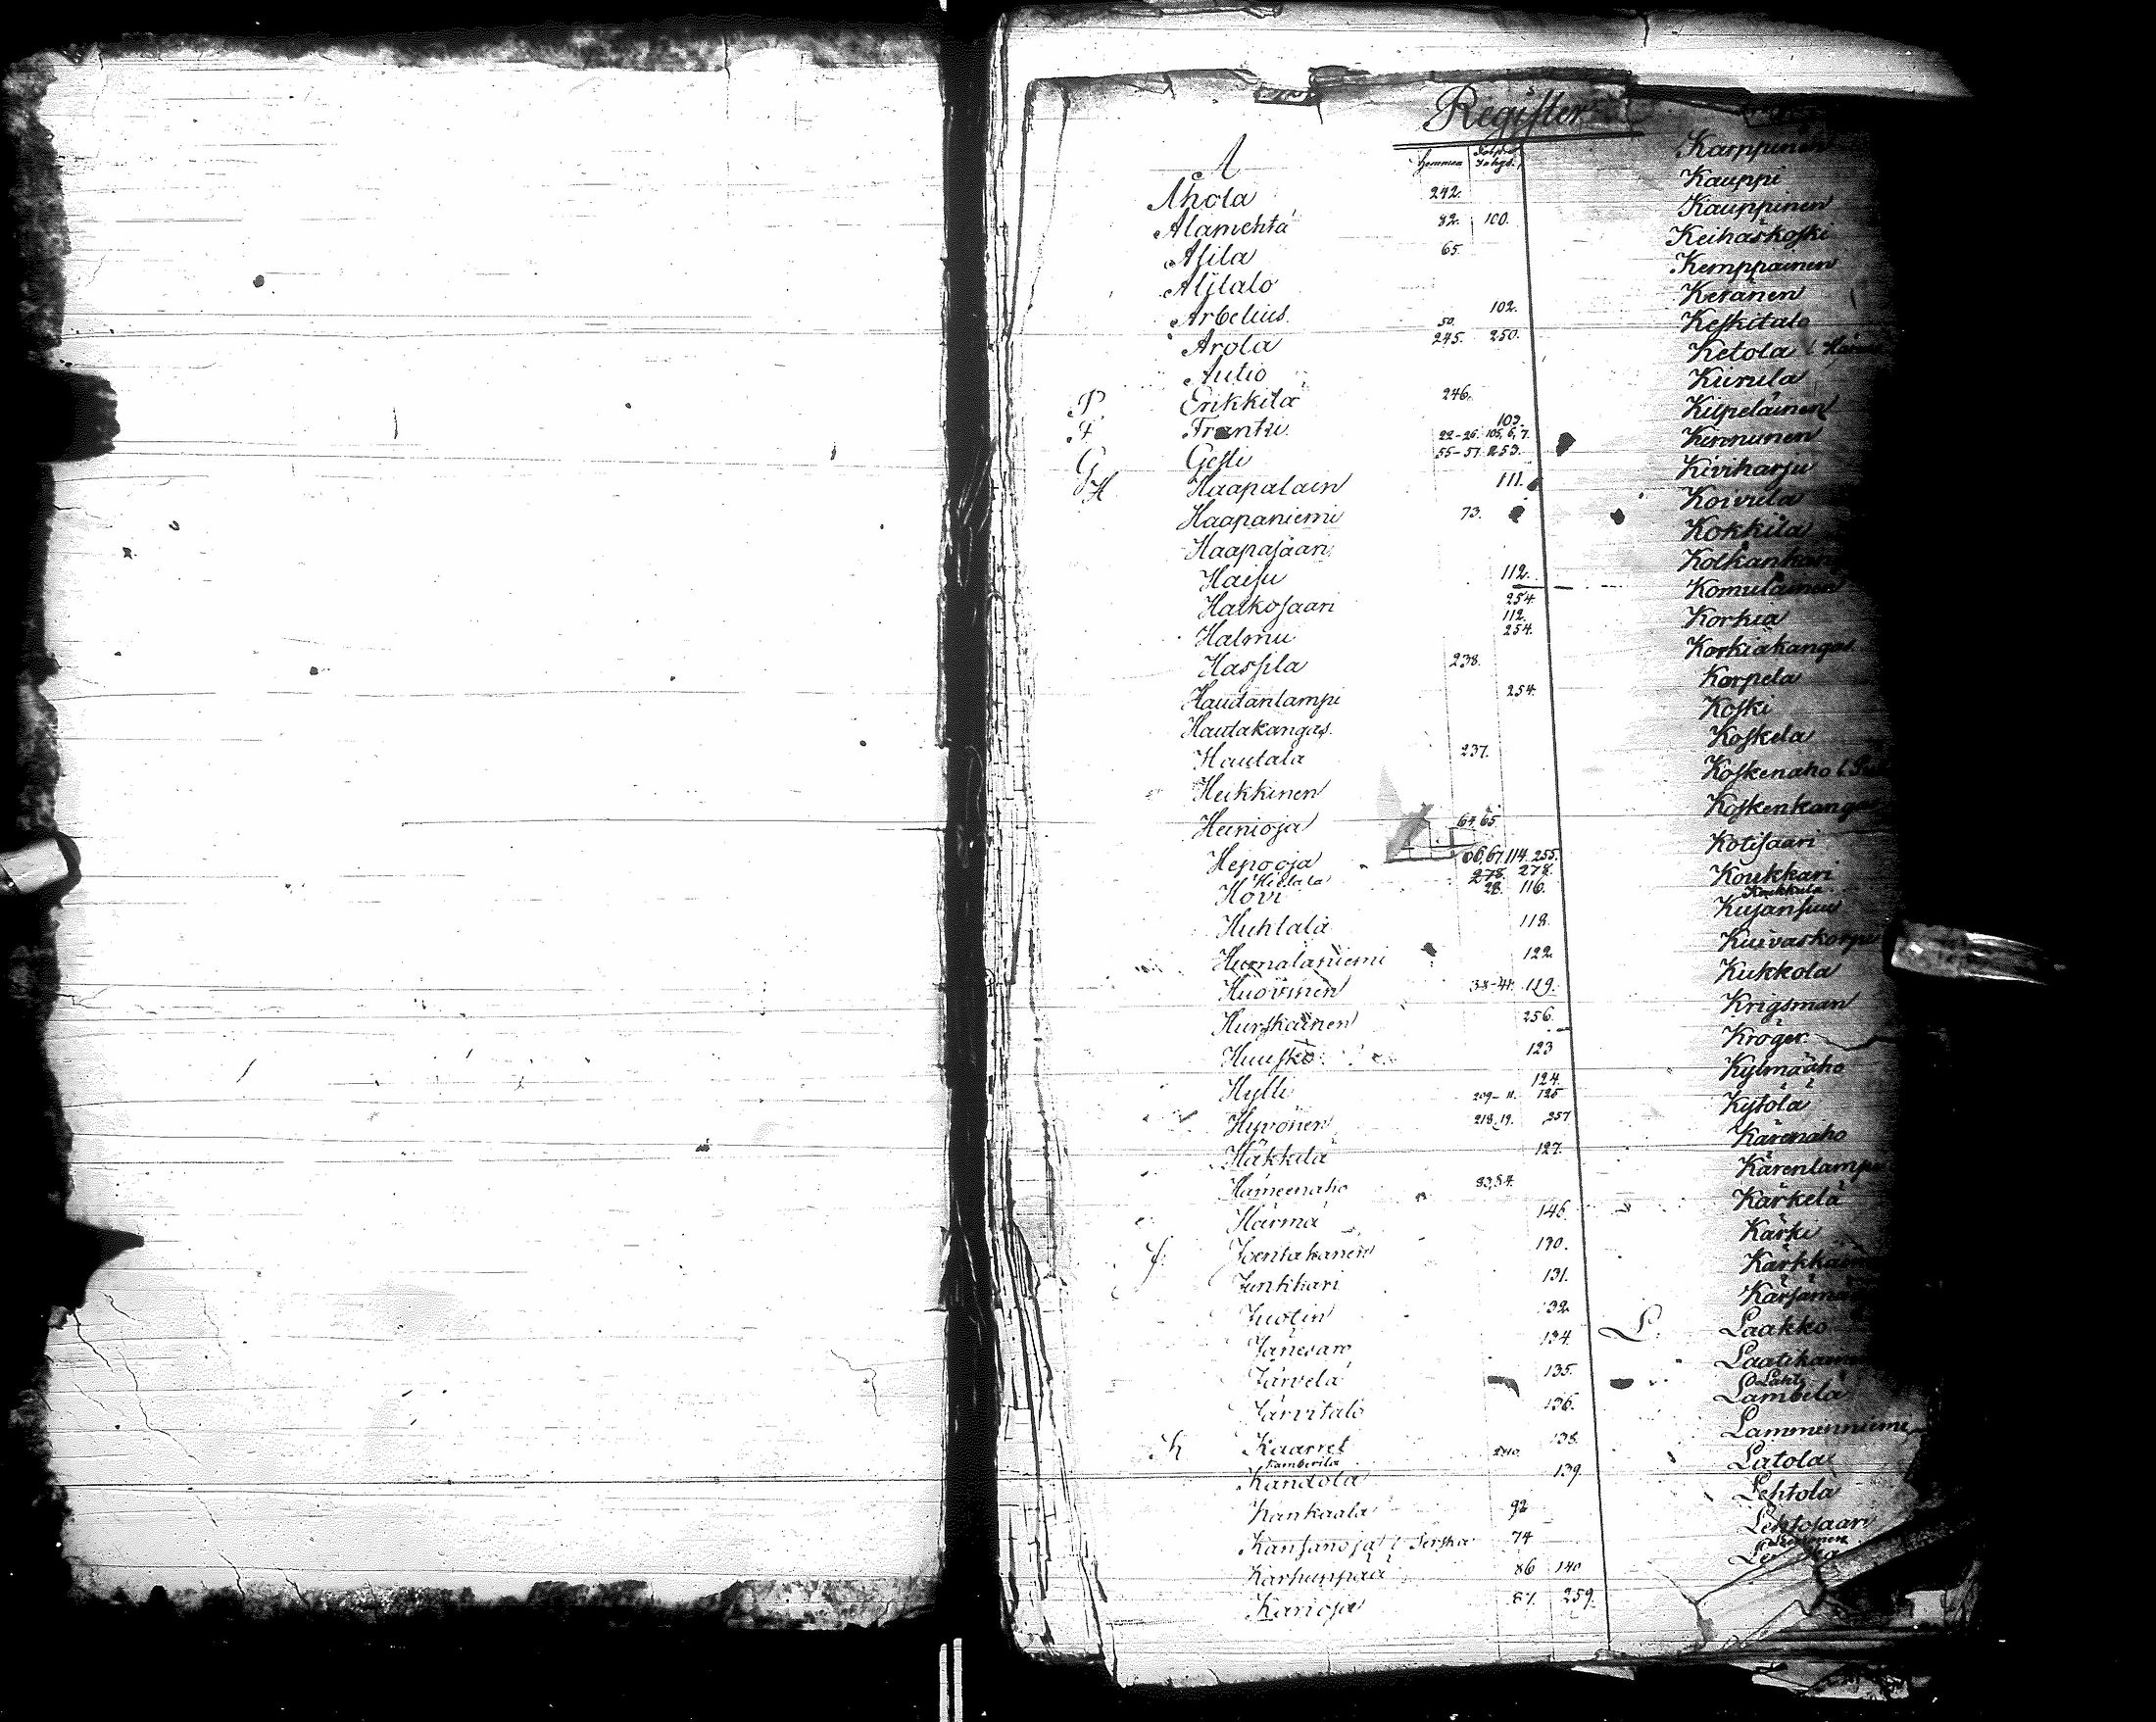 Register
A
Hemman
Ahola 242.
Alamehtä 82. 100.
Alila 65.
Alitalo
Arbelius 102.
Arola 50. 245. 250.
Autio
Erikkilä 246.
F Frantti 103. 22-26. 105, 6, 7.
G Gesti 55-57. 253.
H Haapalain 111.
Haapaniemi 73.
Haapasaari
Haisu 112.
Halkosaari 254.
Halmu 112. 254.
Hassila 238.
Haudanlampi 254.
Hautakangas
Hautala 237.
Heikkinen
Heinioja 64, 65.
Hepooja 66, 67. 114. 255.
Hietala 278. 278.
Hovi 28. 116.
Huhtala 118.
Humalaniemi 122.
Huovinen 38-41. 119.
Hurskainen 256.
Huusko 123
Hylli 124. 209-11. 125
Hyvönen 218, 19. 257
Häkkilä 127.
Hämeenaho 83, 84.
Härmä 146.
J Joentakanen 130.
Junkkari 131.
Juolin 132.
Jänesaro 134.
Järvelä 135.
Järvitalo 136.
K Kaarret 138.
Kamberila 240.
Kandola 139.
Kankaala 92
Kansanoja 74
Karhunpää 86 140
Karioja 87. 259.
Karppinen
Kauppi
Kauppinen
Keihäskoski
Kemppainen
Keränen
Keskitalo
Ketola
Kiurula
Kilpeläinen
Kinnunen
Kiviharju
Koivula
Kokkila
Komulainen
Korkia
Korkiakangas
Korpela
Koski
Koskela
Koskenaho
Koskenkangas
Kotisaari
Koukkari
Koukkula
Kujansuu
Kuivaskorpi
Kukkola
Krigsman
Kröger
Kylmäaho
Kytölä
Kärenaho
Kärenlampi
Kärkelä
Kärki
L. Laakko
Lahti
Lambela
Lammenniemi
Latola
Lehtola
Lehtosaari